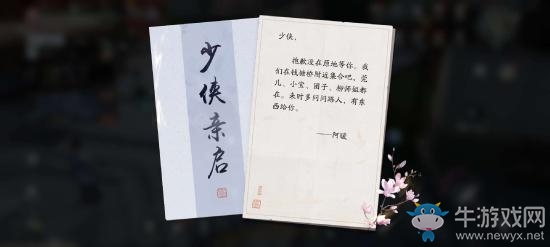 少侠亲启
少侠，
抱歉没在原地等你。我
们在钱塘桥附近集合吧，莞
儿、小宝、团子、柳师姐都
在。来时多问问路人，有东
西给你。
——阿暖
牛游戏网
www.newyx.net